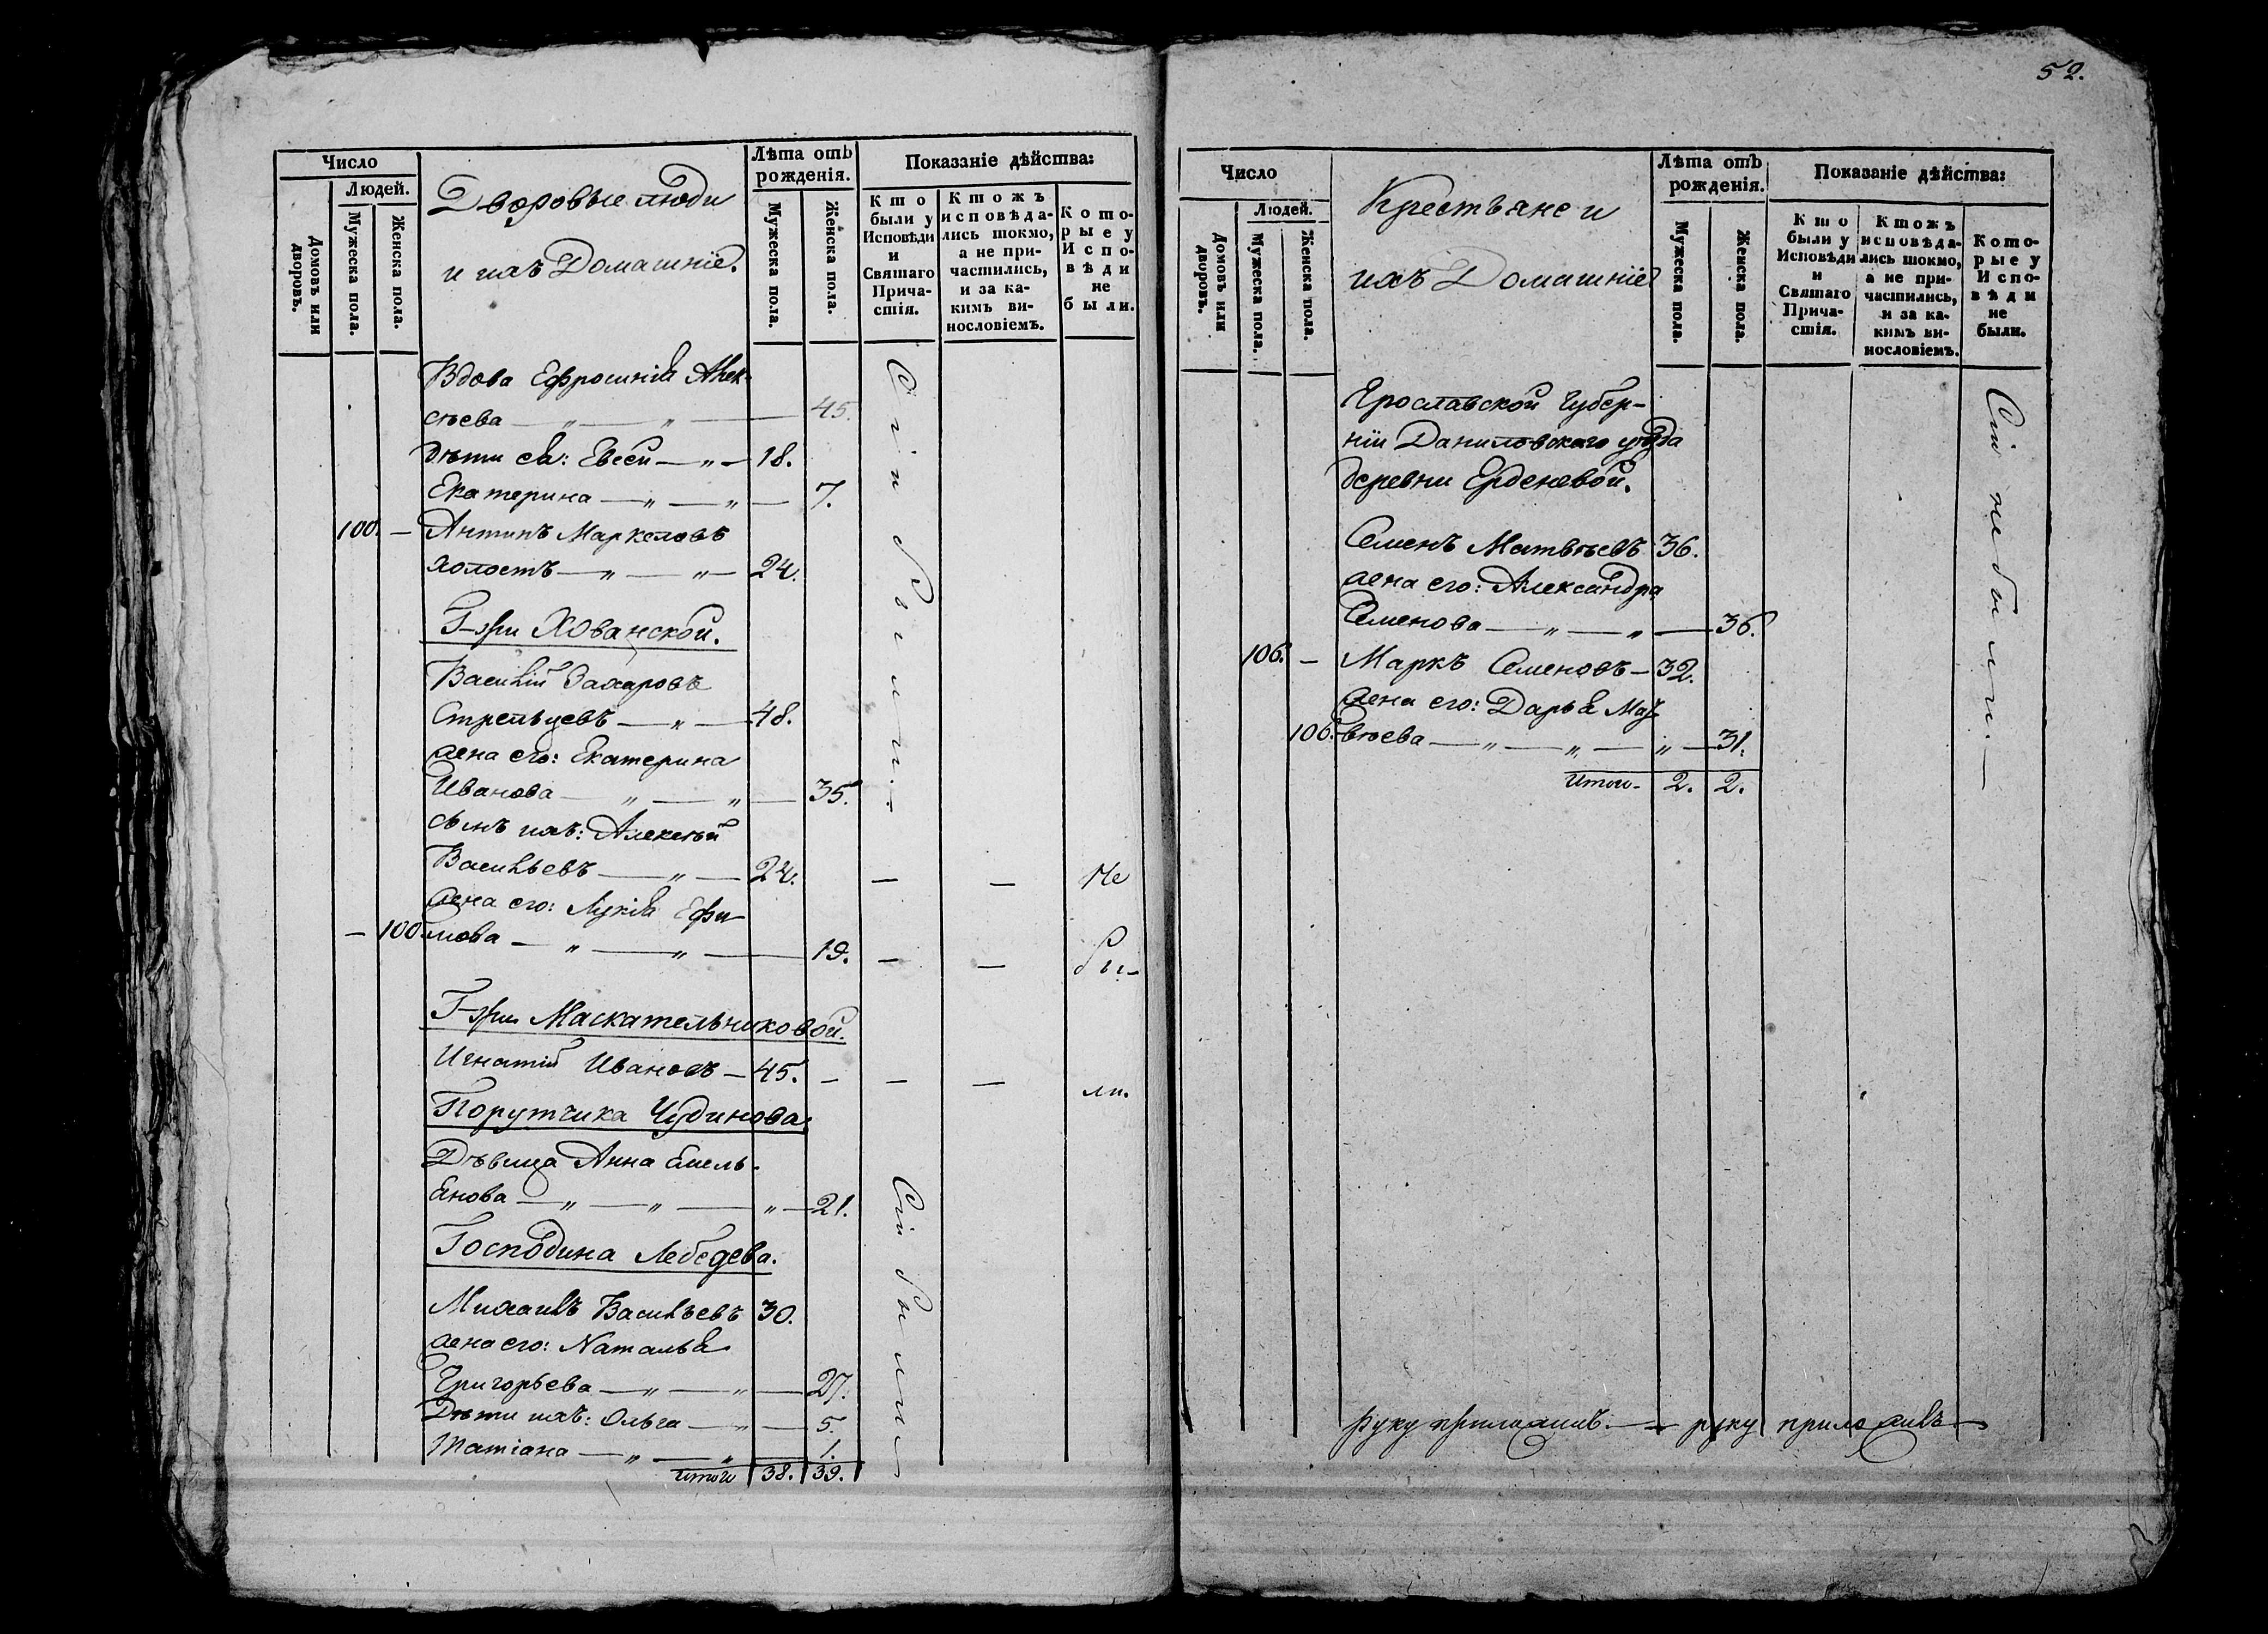 Число
Людей.
Домовъ или дворовъ.
Мужеска пола.
Женска пола.
Дворовые люди
и ихъ Домашніе.
Лѣта отъ
рожденія.
Мужеска пола.
Женска пола.
Показаніе дѣйства:
Кто
были у
Исповѣди
и
Святаго
Прича-
стія.
Ктожъ
исповѣда-
лись токмо,
а не при-
частились,
и за ка-
кимъ ви-
нословіемъ.
Кото-
рые у
Испо-
вѣди
не
были.
Вдова Ефросинія Алек-
сѣева — „ — „ — 45.
дѣти ея: Евсей — „ — 18.
Екатерина — „ — „ — 7.
100. — Антипъ Маркеловъ
холостъ — „ — „ — 24.
Сіи были. —
Г-жи Хованской.
Василій Захаровъ
Стрельцевъ — „ — 48.
жена его: Екатерина
Иванова — „ — „ — 35.
сынъ ихъ: Алексѣй
Васильевъ — „ — 24. — — Не
жена его: Лукія Ефи-
— 100. мова — „ — „ — 19. — — бы-
Г-жи Маскательниковой.
Игнатій Ивановъ — 45. — — — ли.
Порутчика Чудинова.
Дѣвица Анна Емель-
янова — „ — „ — „ — 21.
Господина Лебедева.
Михаилъ Васильевъ 30.
жена его: Наталья
Григорьева — „ — „ — 27.
Дѣти ихъ: Ольга — „ — 5.
Татіана — „ — „ — 1.
Сіи были
итого 38. 39.
52.
Число
Людей.
Домовъ или дворовъ.
Мужеска пола.
Женска пола.
Крестьяне и
ихъ Домашніе
Лѣта отъ
рожденія.
Мужеска пола.
Женска пола.
Показаніе дѣйства:
Кто
были у
Исповѣди
и
Святаго
Прича-
стія.
Ктожъ
исповѣда-
лись токмо,
а не при-
частились,
и за ка-
кимъ ви-
нословіемъ.
Кото-
рые у
Испо-
вѣди
не
были.
Ярославской Губер-
ніи Даниловскаго уѣзда
деревни Ерденевой.
Семенъ Матвѣевъ 36.
жена его: Александра
Семенова — „ — „ — 36.
106. — Маркъ Семеновъ — 32.
жена его: Дарья Мат-
106. вѣева — „ — „ — „ — 31.
Сіи не были. —
Итого — 2. 2.
руку приложилъ. — руку приложилъ —